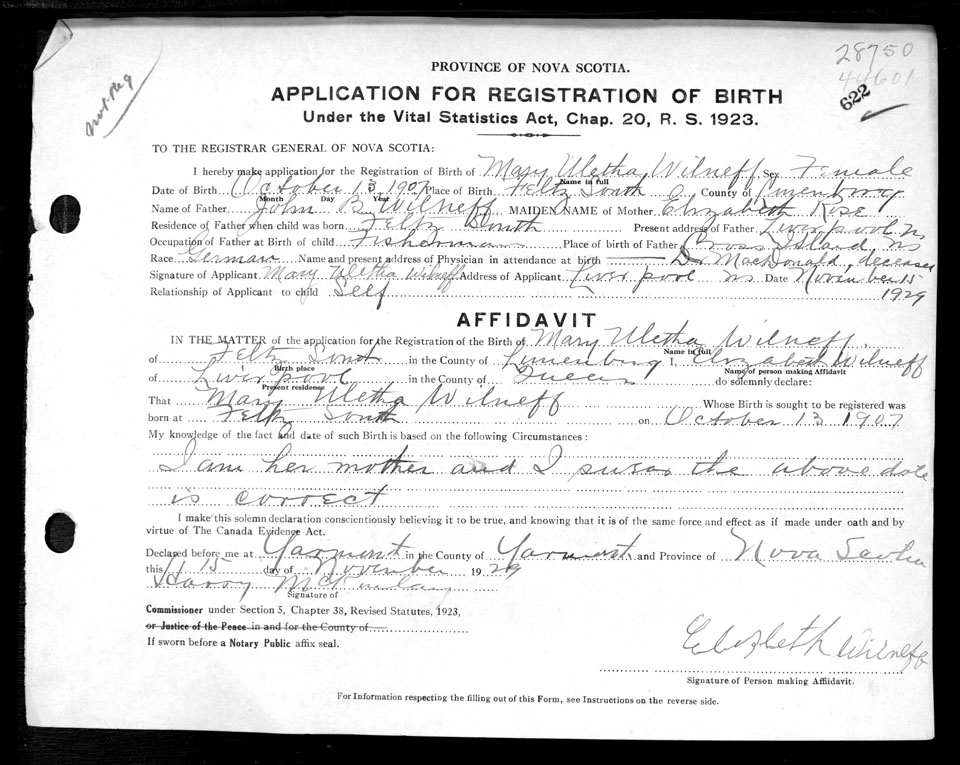 28750
44601
622
not reg
PROVINCE OF NOVA SCOTIA.
APPLICATION FOR REGISTRATION OF BIRTH
Under the Vital Statistics Act, Chap. 20, R. S. 1923.
TO THE REGISTRAR GENERAL OF NOVA SCOTIA:
I hereby make application for the Registration of Birth of Mary Uletha Wilneff Sex Female
Name in full
Date of Birth October 13 1907 Place of Birth Feltz South County of Lunenburg
Month Day Year
Name of Father John B Wilneff MAIDEN NAME of Mother Elizabeth Rose
Residence of Father when child was born Feltz South Present address of Father Liverpool NS
Occupation of Father at Birth of child Fisherman Place of birth of Father Cross Island, NS
Race German Name and present address of Physician in attendance at birth Dr MacDonald, deceased
Signature of Applicant Mary Uletha Wilneff Address of Applicant Liverpool NS Date November 15
Relationship of Applicant to child Self 1929
AFFIDAVIT
IN THE MATTER of the application for the Registration of the Birth of Mary Uletha Wilneff
Name in full
of Feltz South in the County of Lunenburg I, Elizabeth Wilneff
Birth place Name of person making Affidavit
of Liverpool in the County of Queens do solemnly declare:
Present residence
That Mary Uletha Wilneff Whose Birth is sought to be registered was
born at Feltz South on October 13 1907
My knowledge of the fact and date of such Birth is based on the following Circumstances:
I am her mother and I swear the above date
is correct
I make this solemn declaration conscientiously believing it to be true, and knowing that it is of the same force and effect as if made under oath and by
virtue of The Canada Evidence Act.
Declared before me at Yarmouth in the County of Yarmouth and Province of Nova Scotia
this 15 day of November 1929
Harry
Signature of
Commissioner under Section 5, Chapter 38, Revised Statutes, 1923,
or Justice of the Peace in and for the County of
If sworn before a Notary Public affix seal.
Elizbeth Wilneff
Signature of Person making Affidavit.
For Information respecting the filling out of this Form, see Instructions on the reverse side.